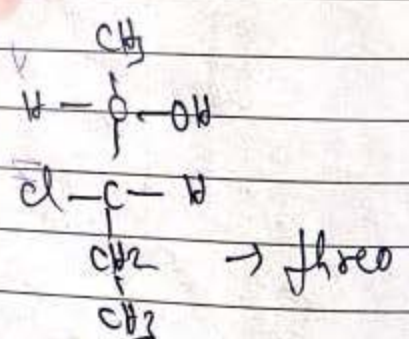 CH3
H - C - OH
Cl - C - H
CH2 → threo
CH3